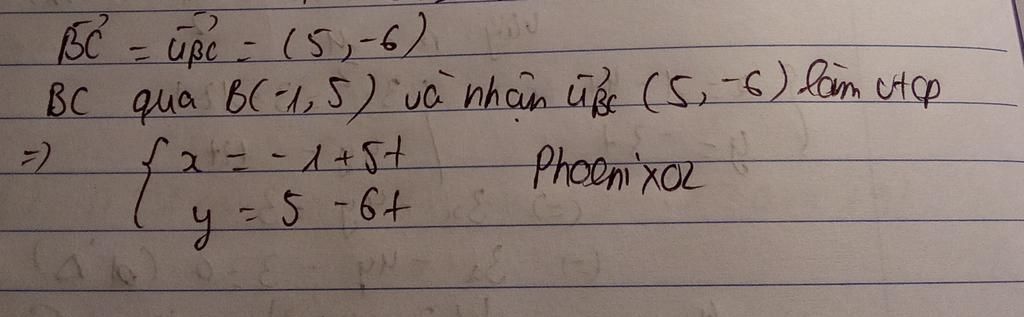 BC⃗ = u⃗BC = (5, -6)
BC qua B(-1, 5) và nhận u⃗BC (5, -6) làm vtcp
=> { x = -1 + 5t
y = 5 - 6t
Phoenix02